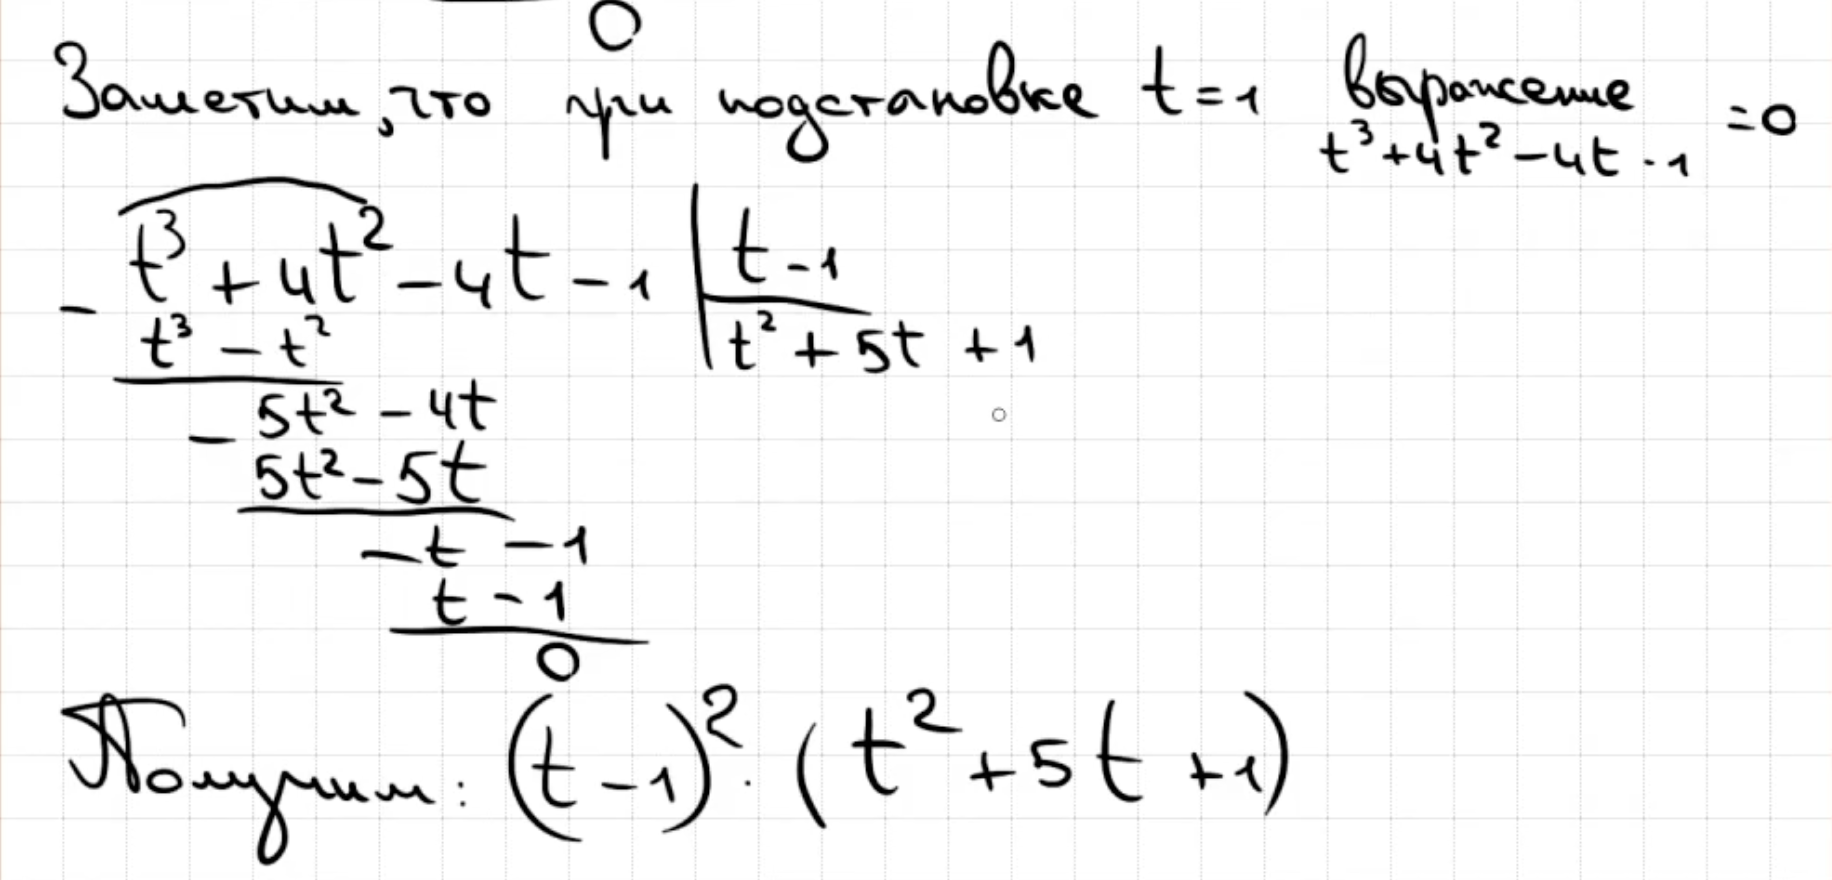 0
Заметим, что при подстановке t=1 выражение t³+4t²-4t-1 =0
t³+4t²-4t-1 | t-1
- t³-t² | t²+5t+1
5t²-4t
- 5t²-5t
- t-1
t-1
0
Получим: (t-1)²·(t²+5t+1)